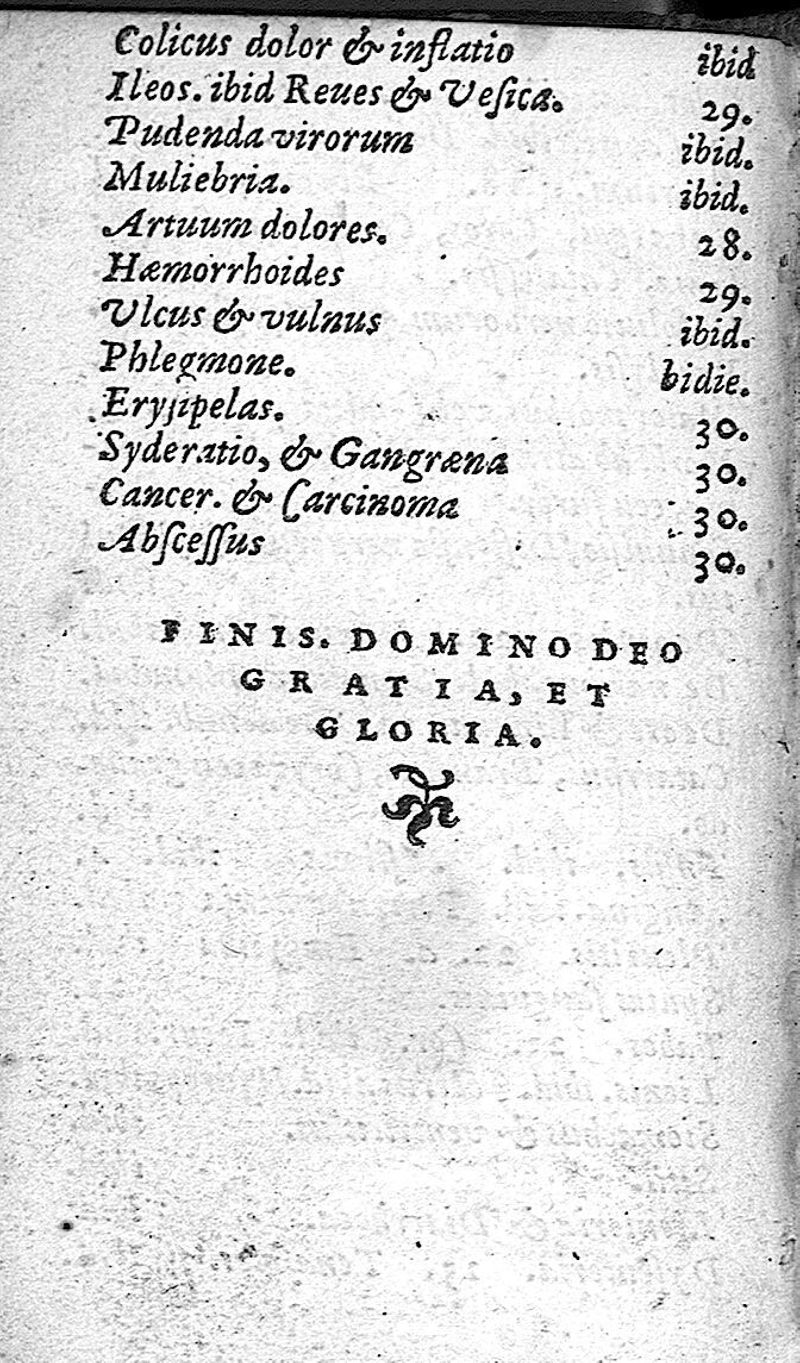 Colicus dolor & inflatio ibid
Ileos. ibid Reues & Veſica. 29.
Pudenda virorum ibid.
Muliebria. ibid.
Artuum dolores. 28.
Hæmorrhoides 29.
Vlcus & vulnus ibid.
Phlegmone. bidie.
Eryſipelas. 30.
Syderatio, & Gangræna 30.
Cancer. & Carcinoma 30.
Abſceſſus 30.
FINIS. DOMINO DEO
GRATIA, ET
GLORIA.